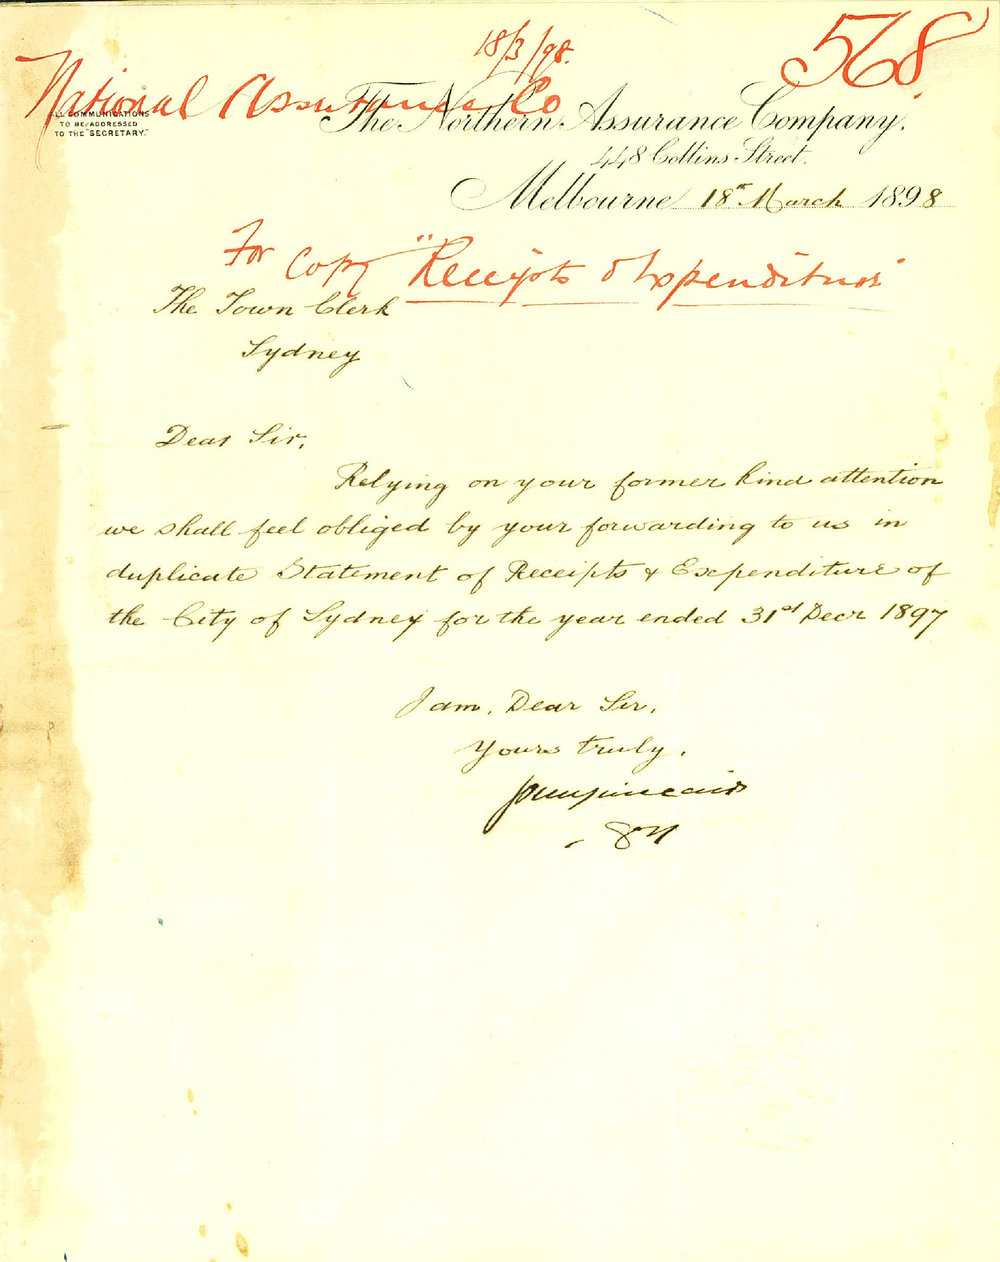 18/3/98.
568
National Assurance Co
ALL COMMUNICATIONS
TO BE ADDRESSED
TO THE "SECRETARY."
The Northern Assurance Company.
448 Collins Street.
Melbourne 18th March 1898
For Copy "Receipts & Expenditure"
The Town Clerk
Sydney
Dear Sir,
Relying on your former kind attention
we shall feel obliged by your forwarding to us in
duplicate Statement of Receipts & Expenditure of
the City of Sydney for the year ended 31st Decr 1897
I am, Dear Sir,
Yours truly.